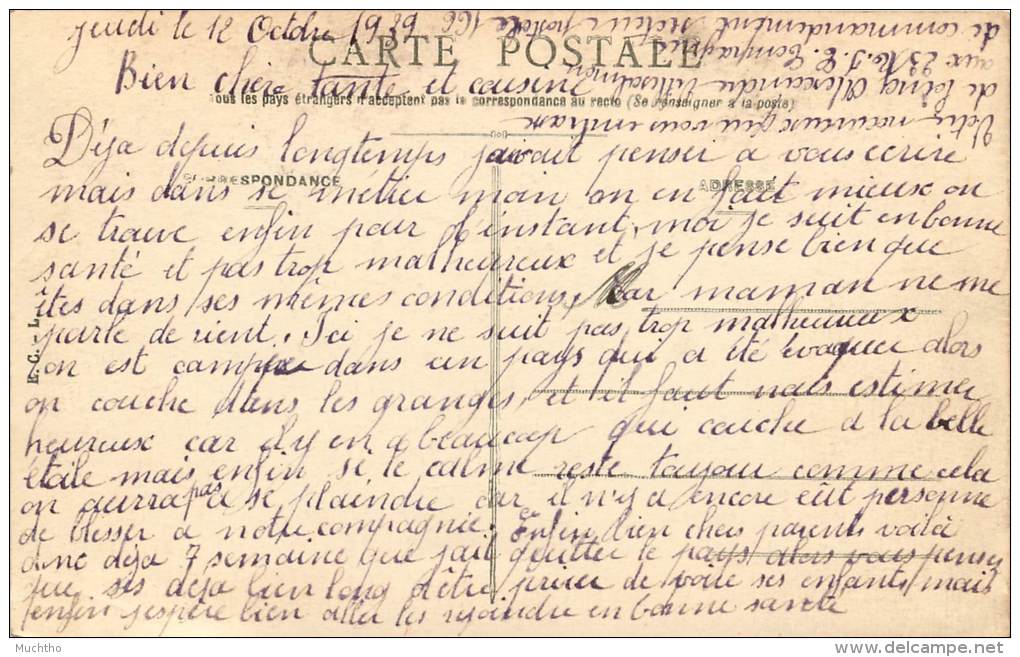 jeudi le 12 Octobre 1939
CARTE POSTALE
Bien chère tante et cousine
Tous les pays étrangers n'acceptent pas la correspondance au recto (Se renseigner à la poste)
Déja depuis longtemps javait penser a vous ecrire
CORRESPONDANCE
ADRESSE
mais dans se métier moin on en fait mieux on
se trouve enfin pour l'instant, moi je suit en bonne
santé et pas trop malheureux et je pense bien que
êtes dans ses mêmes conditions, car maman ne me
parle de rient. Ici je ne suit pas trop malheureux
on est camper dans un pays qui a été évaquer alors
on couche dans les granges, et il faut nais estimer
heureux car il y en a beaucoup qui couche a la belle
étoile mais enfin si le calme reste toujour comme cela
on aurra pas a se plaindre car il n'y a encore eût personne
de blesser a notre compagnie. Enfin bien chers parents voilà
donc déja 7 semaine que jait quitter le pays, alors vous penser
que ses déja bien long d'être priver de voire ses enfants, mais
enfin j'espère bien aller les rejoindre en bonne santé
Votre neveux qui vous embrasse
de loing Alexandre
aux 23 Compagnie
de commandement secteur postale 166
E. C. - L.
Muchtho
www.delcampe.net